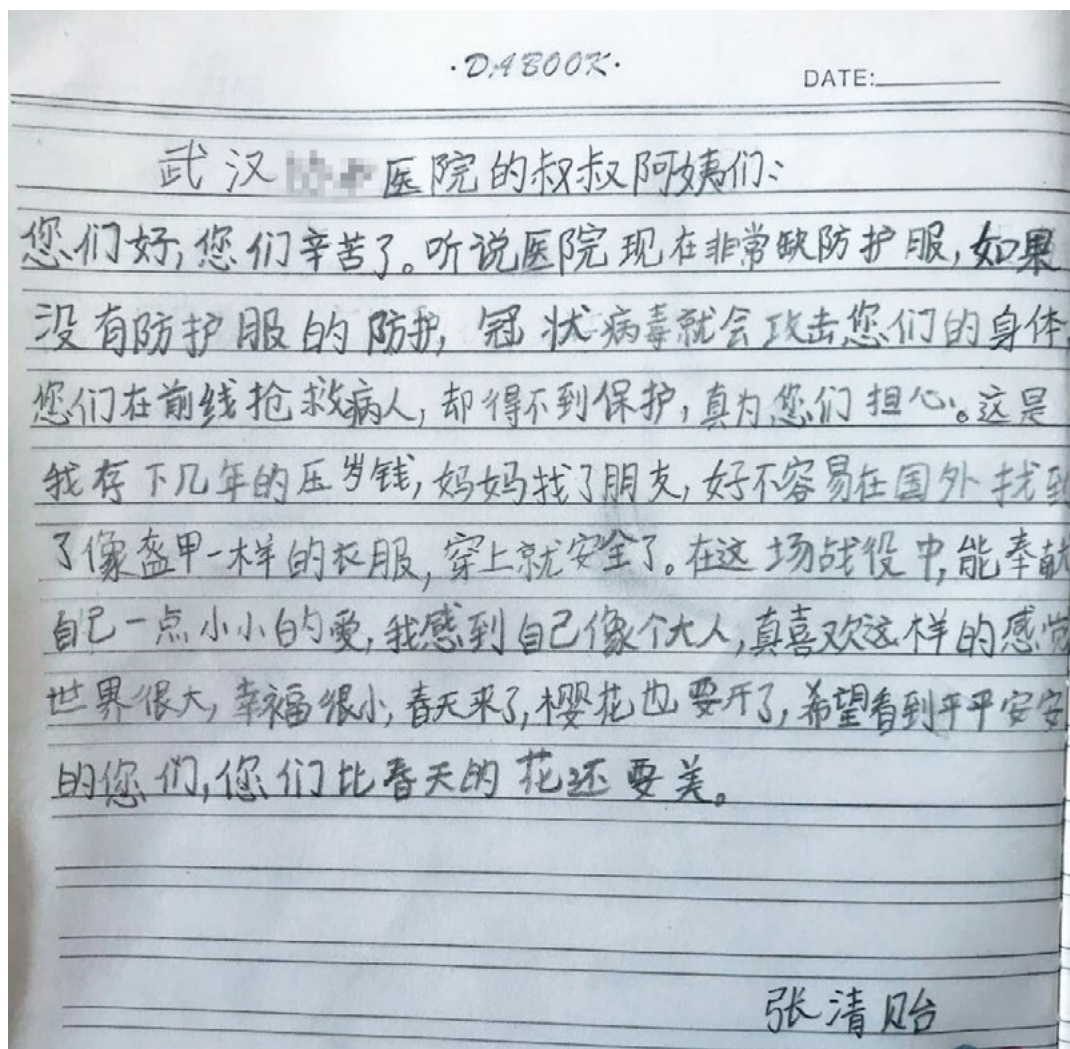 ·DABOOK·
DATE:
武汉 医院的叔叔阿姨们:
您们好,您们辛苦了。听说医院现在非常缺防护服,如果
没有防护服的防护,冠状病毒就会攻击您们的身体
您们在前线抢救病人,却得不到保护,真为您们担心。这是
我存下几年的压岁钱,妈妈找了朋友,好不容易在国外找到
了像盔甲一样的衣服,穿上就安全了。在这场战役中,能奉献
自己一点小小的爱,我感到自己像个大人,真喜欢这样的感觉
世界很大,幸福很小,春天来了,樱花也要开了,希望看到平平安安
的您们,您们比春天的花还要美。
张清贻